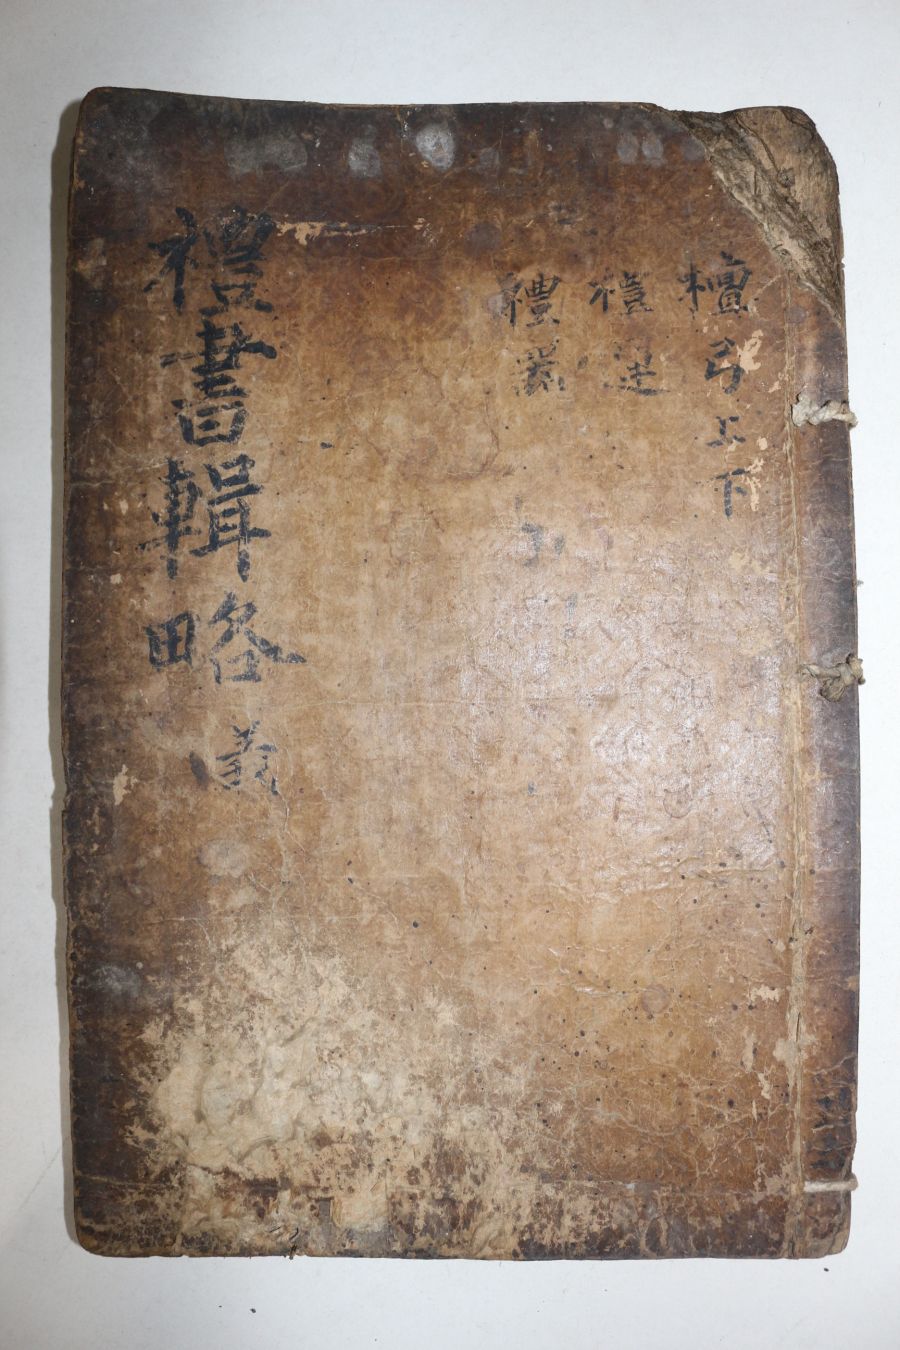 檀弓上下
禮運
禮器
禮書輯略 義